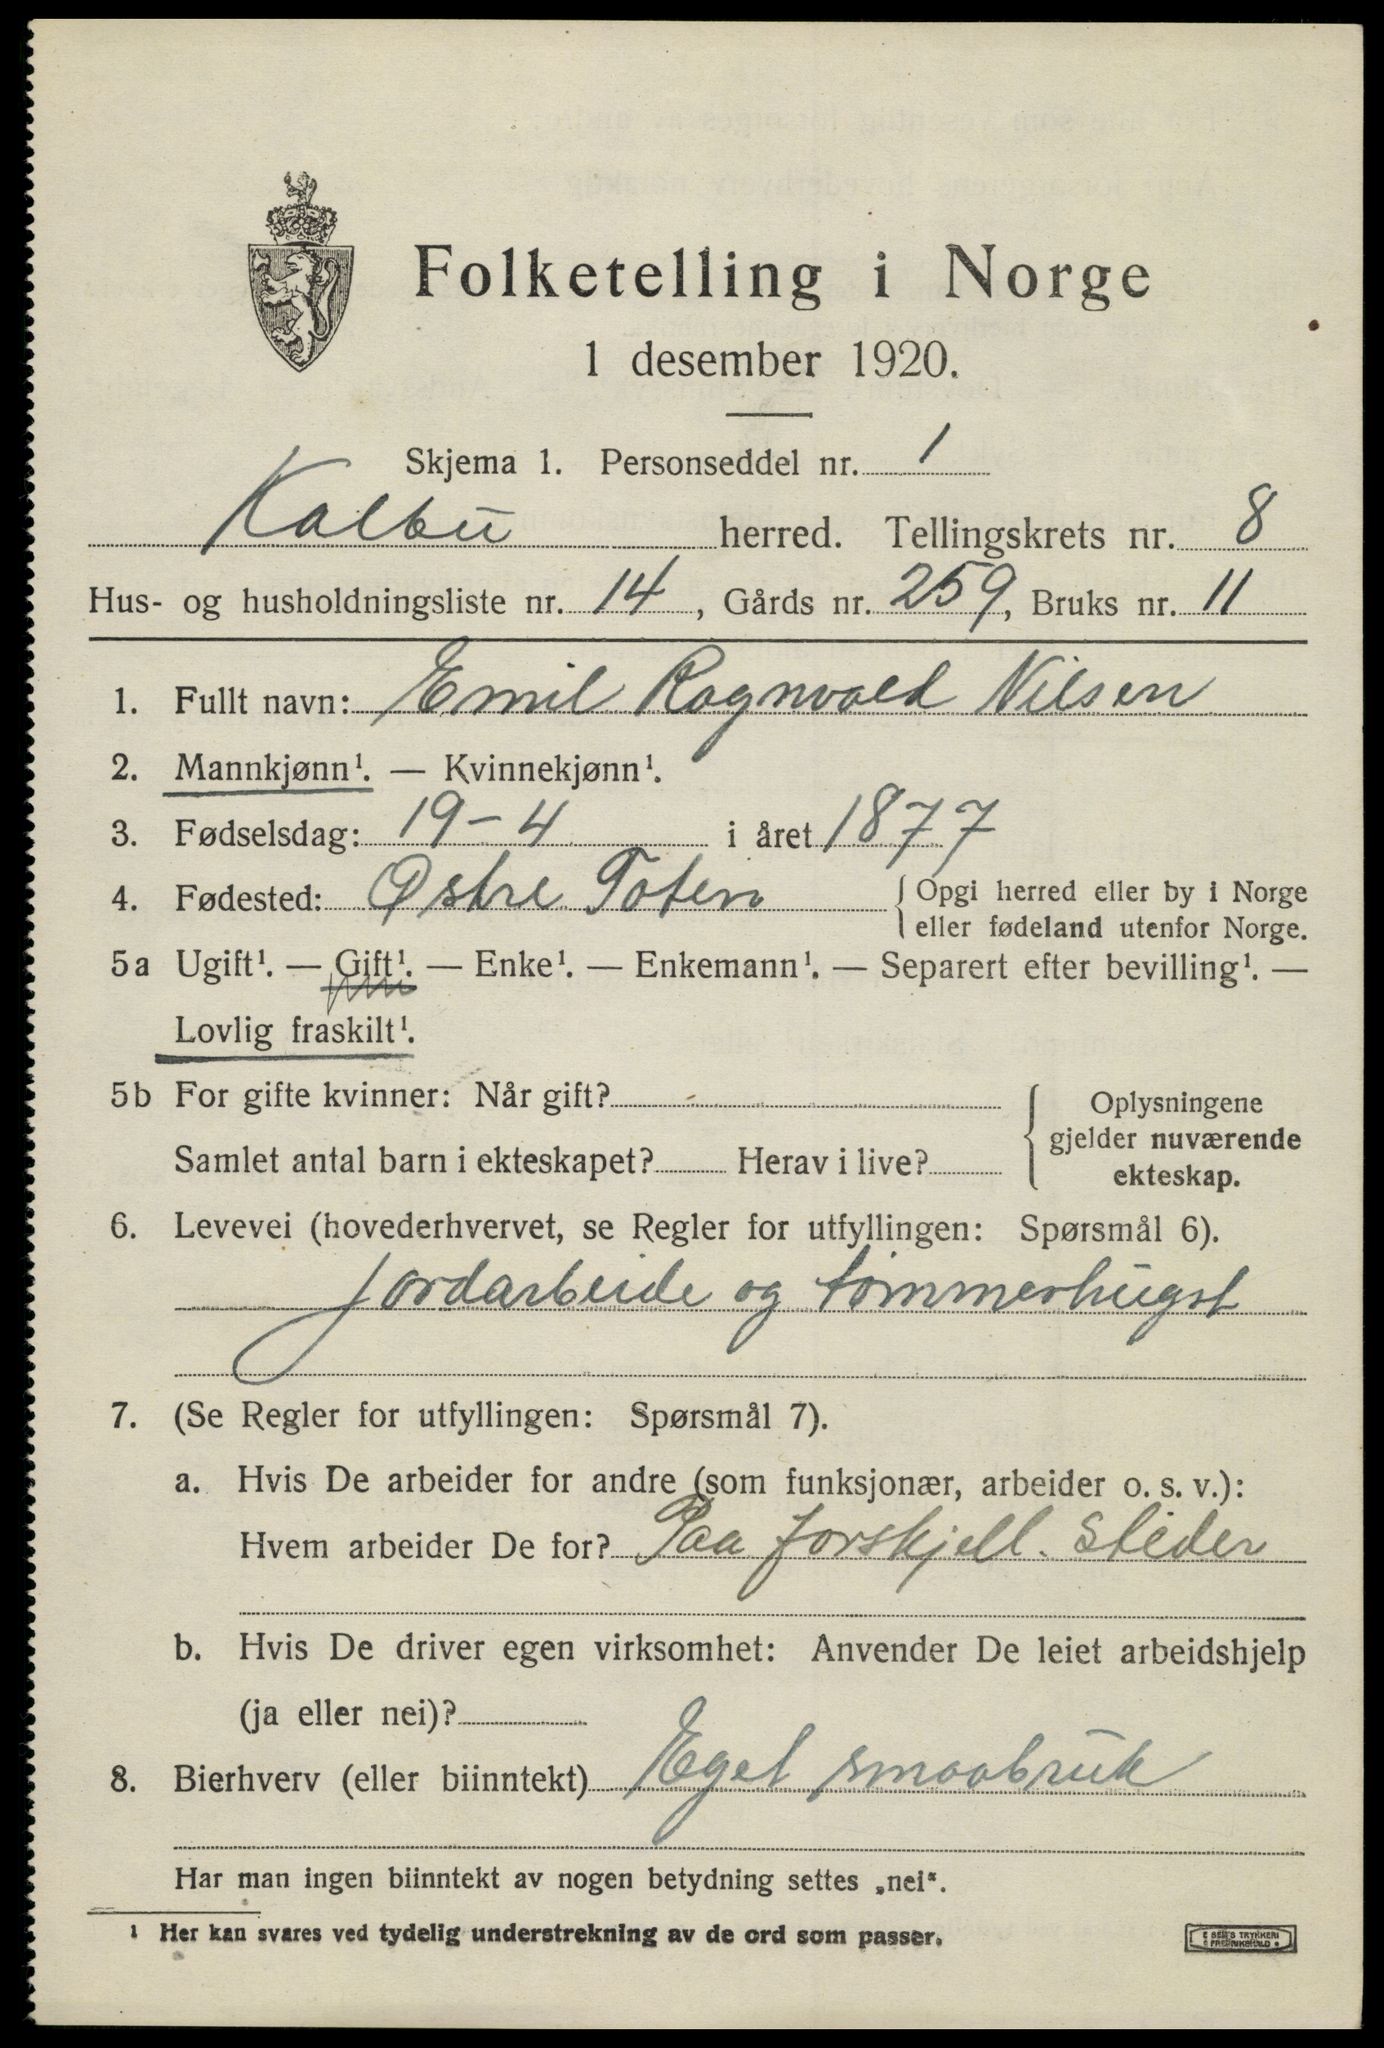 Folketelling i Norge
1 desember 1920.
Skjema 1. Personseddel nr. 1
Kolbu herred. Tellingskrets nr. 8
Hus- og husholdningsliste nr. 14, Gårds nr. 259, Bruks nr. 11
1. Fullt navn: Emil Ragnvald Nilsen
2. Mannkjønn¹. — Kvinnekjønn¹.
3. Fødselsdag: 19-4 i året 1877
4. Fødested: Østre Toten { Opgi herred eller by i Norge
eller fødeland utenfor Norge.
5a Ugift¹. — Gift¹. — Enke¹. — Enkemann¹. — Separert efter bevilling¹. —
Lovlig fraskilt¹.
5b For gifte kvinner: Når gift?
Samlet antal barn i ekteskapet? Herav i live?
Oplysningene
gjelder nuværende
ekteskap.
6. Levevei (hovederhvervet, se Regler for utfyllingen: Spørsmål 6).
Jordarbeide og tømmerhugst
7. (Se Regler for utfyllingen: Spørsmål 7).
a. Hvis De arbeider for andre (som funksjonær, arbeider o. s. v.):
Hvem arbeider De for? Paa forskjell. steder
b. Hvis De driver egen virksomhet: Anvender De leiet arbeidshjelp
(ja eller nei)?
8. Bierhverv (eller biinntekt) Eget smaabruk
Har man ingen biinntekt av nogen betydning settes „nei“.
¹ Her kan svares ved tydelig understrekning av de ord som passer.
E SEM'S TRYKKERI
FREDRIKSHALD